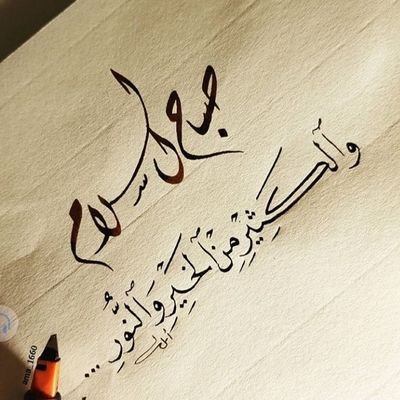 صباح السلام
وَالكَثِيرِ مِنَ الخَيْرِ وَالنُّورِ...
ama_1660